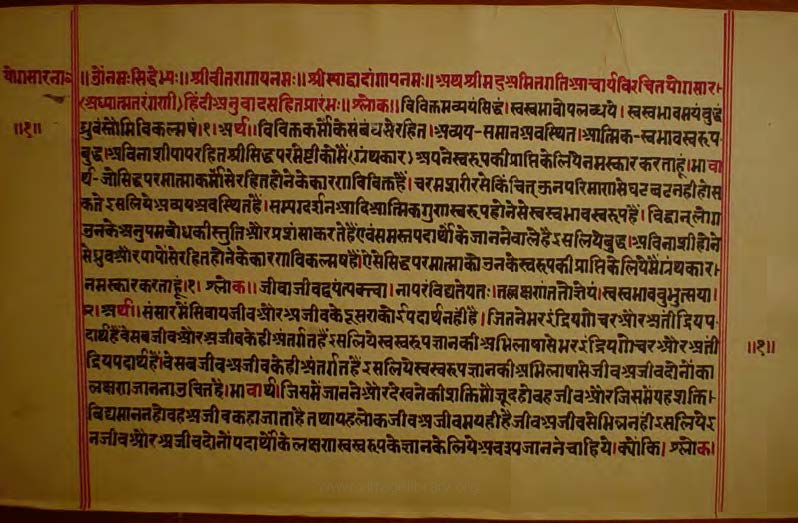 योगसारनाष ॥ ओंनमःसिद्धेभ्यः॥ श्रीवीतरागायनमः॥ श्रीस्याद्वादांगायनमः॥ अथश्रीमदुअमितगतिआचार्यविरचितयोगसार।
(अध्यात्मतरंगणी) हिंदीअनुवादसहितप्रारंभः॥ श्लोक॥ विविक्तमव्ययंसिद्धं। स्वस्वभावोपलब्धये। स्वस्वभावमयंबुद्धं
॥१॥ ध्रुवंस्तौमिविकल्मषं।१। अर्थ॥ विविक्तकर्मोकेसंबंधसेरहित। अव्यय-समानअवस्थित। आत्मिक-स्वभावस्वरूप
बुद्ध। अविनाशीपापरहितश्रीसिद्धपरमेष्टीकोमैं(ग्रंथकार) अपनेस्वरूपकीप्राप्तिकेलियेनमस्कारकरताहूं। भावा
र्थ-जोसिद्धपरमात्माकर्मोसेरहितहोनेकेकारणविविक्तहैं। चरमशरीरसेकिंचित्ऊनपरिमाणसेघटबढनहींहोस
कतेइसलियेअव्ययअवस्थितहैं। सम्यग्दर्शनआदिआत्मिकगुणस्वरूपहोनेसेस्वस्वभावस्वरूपहैं। विद्वान्लोग
उनकेअनुपमबोधकीस्तुतिऔरप्रशंसाकरतेहैंएवंसमस्तपदार्थोंकेजाननेवालेहैंइसलियेबुद्ध। अविनाशीहोने
सेध्रुवऔरपापोंसेरहितहोनेकेकारणविकल्मषहैं।ऐसेसिद्धपरमात्माकोउनकेस्वरूपकीप्राप्तिकेलियेमैंग्रंथकार।
नमस्कारकरताहूं।१। श्लोक॥ जीवाजीवद्वयंत्यक्त्वा। नापरंविद्यतेयतः। तल्लक्षणंततोज्ञेयं। स्वस्वभावबुभुत्सया।
२। अर्थ॥ संसारमेंसिवायजीवऔरअजीवकेदूसराकोइपदार्थनहींहै। जितनेभरइंद्रियगोचरऔरअतींद्रियप-
दार्थहैंवेसबजीवऔरअजीवकेहीअंतर्गतहैंइसलियेस्वस्वरूपज्ञानकीअभिलाषासेभरइंद्रियगोचरऔरअतीं
॥१॥
द्रियपदार्थहैं।वेसबजीवअजीवकेहीअंतर्गतहैंइसलियेस्वस्वरूपज्ञानकीअभिलाषासेजीवअजीवदोनोंका
लक्षणजाननाउचितहै। भावार्थ। जिसमेंजाननेऔरदेखनेकीशक्तिमौजूदहोवहजीवऔरजिसमेंयहशक्ति।
विद्यमाननहोवहअजीवकहाजाताहैतथायहलोकजीवअजीवमयहीहैजीवअजीवसेभिन्ननहींइसलियेइ
नजीवऔरअजीवदोनोंपदार्थोंकेलक्षणस्वस्वरूपकेज्ञानकेलियेअवश्यजाननेचाहिये। क्योंकि। श्लोक।